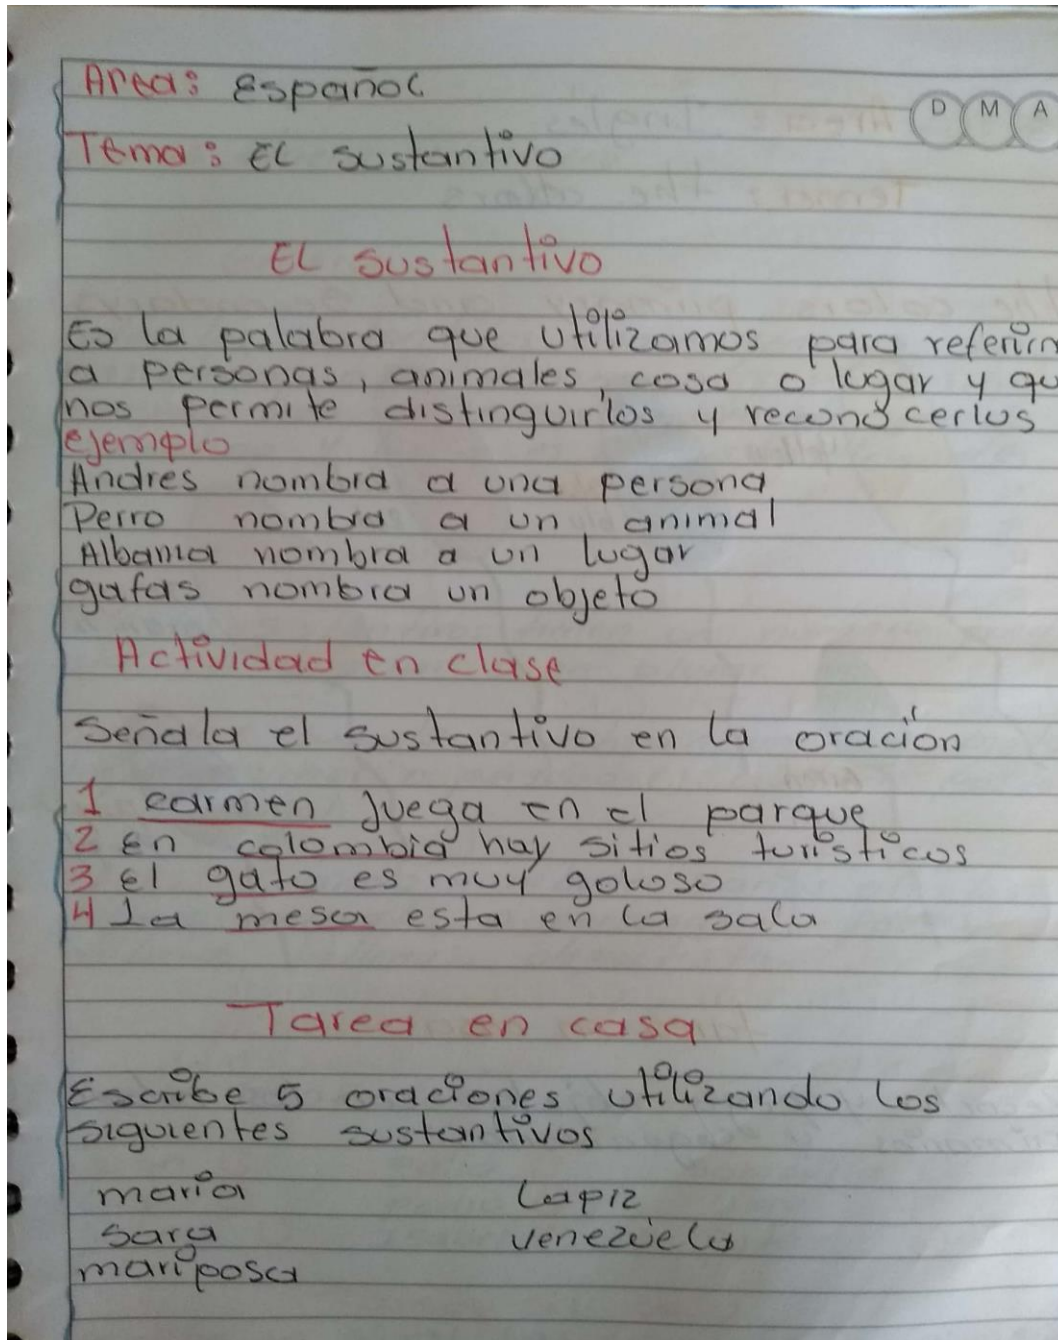 Area: Español
D M A
Tema: El sustantivo
El sustantivo
Es la palabra que utilizamos para referirn
a personas, animales, cosa o lugar y qu
nos permite distinguirlos y reconocerlos
ejemplo
Andres nombra a una persona
Perro nombra a un animal
Albania nombra a un lugar
gafas nombra un objeto
Actividad en clase
Señala el sustantivo en la oración
1 carmen juega en el parque
2 En colombia hay sitios turisticos
3 El gato es muy goloso
4 La mesa esta en la sala
Tarea en casa
Escribe 5 oraciones utilizando los
siguientes sustantivos
maria Lapiz
sara venezuela
mariposa